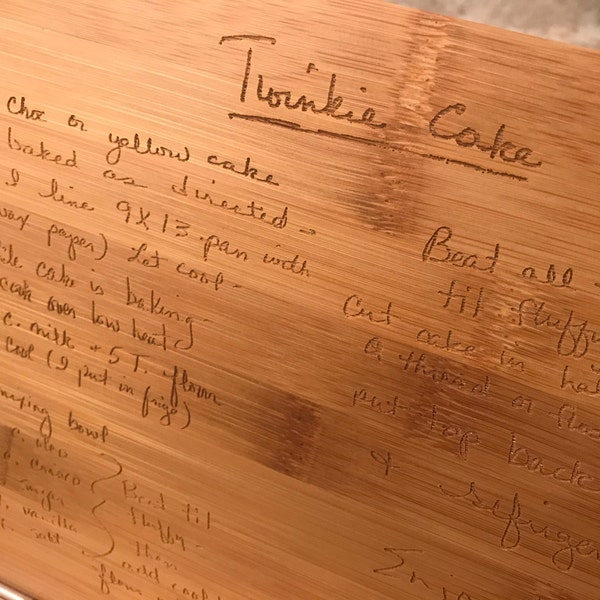 Twinkie Cake
choc or yellow cake
baked as directed -
I line 9X13 pan with
wax paper) Let cool -
cake is baking -
cook over low heat)
c. milk + 5 T. flour
cool (I put in frige)
mixing bowl
oleo
crisco
vanilla
salt
Beat til
fluffy -
then
add cool
flour
Beat all -
til fluffy
Cut cake in hal
a thread or flos
put top back
+ refriger
Enjo